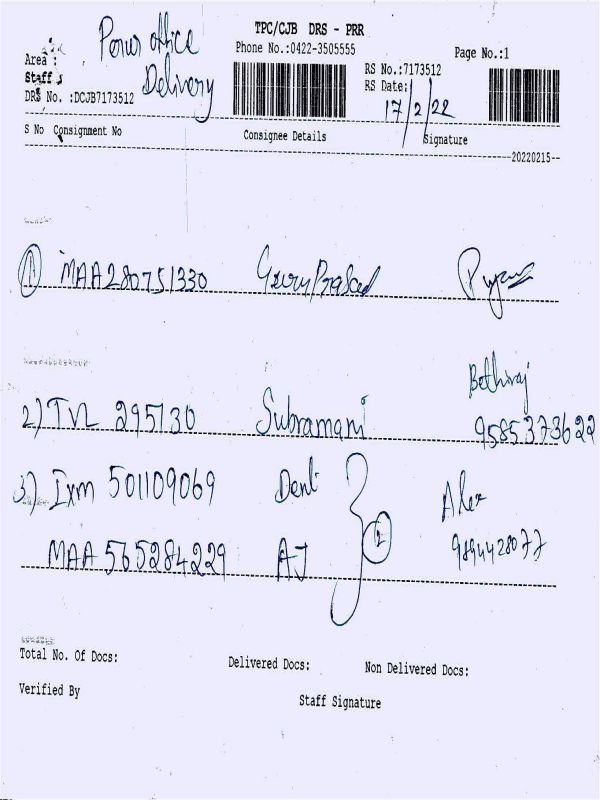 TPC/CJB DRS - PRR
Perur office
Delivery
Phone No.:0422-3505555
Page No.:1
Area :
Staff :
DRS No. :DCJB7173512
RS No.:7173512
RS Date:
17/2/22
S No Consignment No
Consignee Details
Signature
20220215
1 MAA280751330 GuruPrasad
2) TVL 295730 Subramani
Bethiraj
9585373622
3) Ixm 501109069 Dent
MAA 565284229 AJ
2
Alex
9894428077
Total No. Of Docs:
Delivered Docs:
Non Delivered Docs:
Verified By
Staff Signature